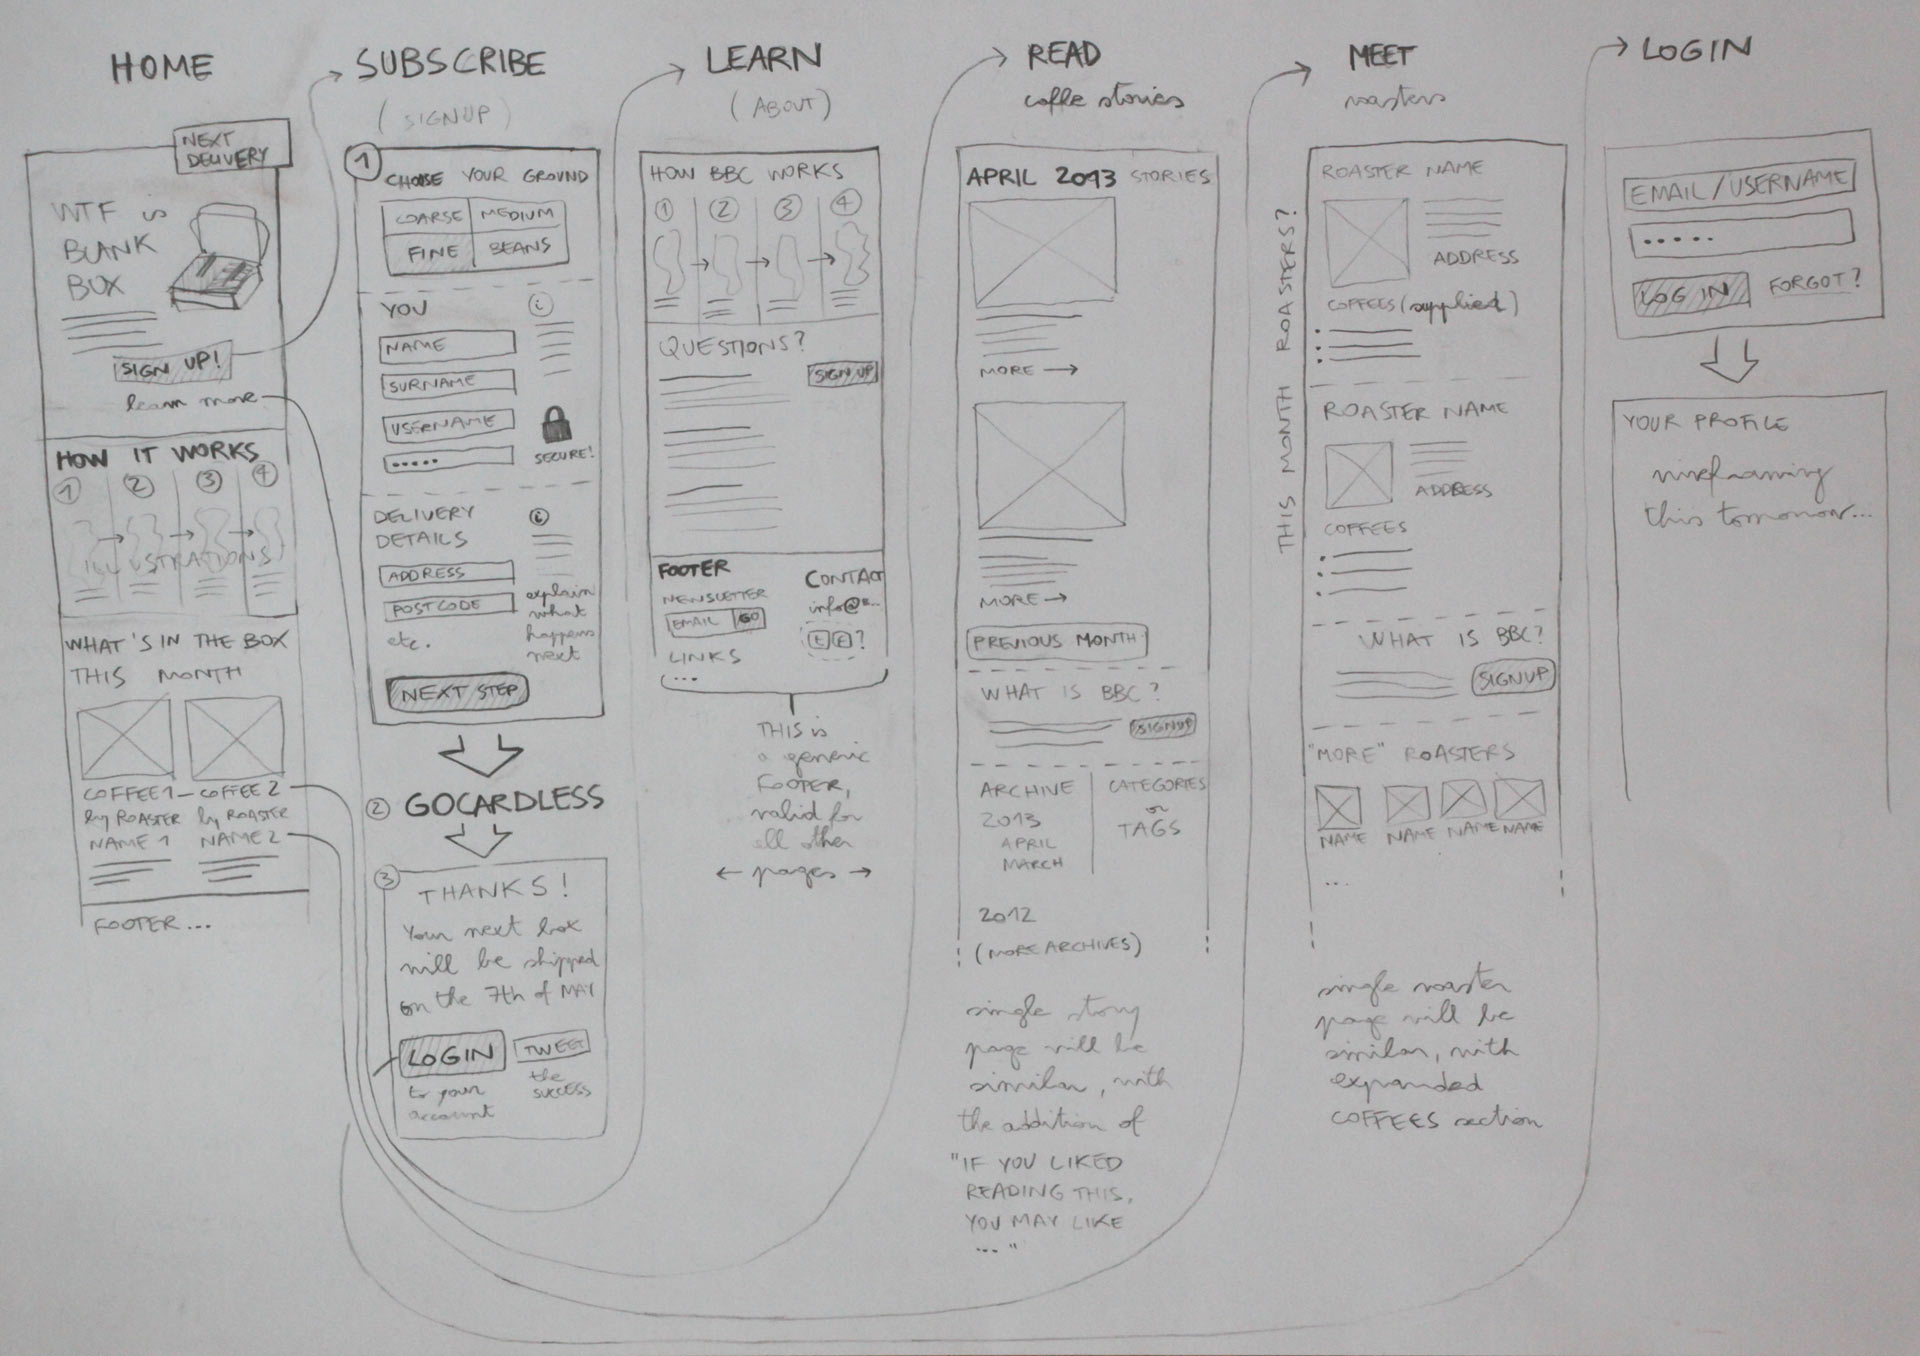 HOME
NEXT
DELIVERY
WTF is
BLANK
BOX
SIGN UP!
learn more
HOW IT WORKS
1 2 3 4
ILLUSTRATIONS
WHAT'S IN THE BOX
THIS MONTH
COFFEE 1 - COFFEE 2
by ROASTER by ROASTER
NAME 1 NAME 2
FOOTER ...
SUBSCRIBE
(SIGNUP)
1
CHOOSE YOUR GROUND
COARSE MEDIUM
FINE BEANS
YOU
i
NAME
SURNAME
USERNAME
.....
SECURE!
DELIVERY
DETAILS
i
ADDRESS
POSTCODE
etc.
explain
what
happens
next
NEXT STEP
2 GOCARDLESS
3
THANKS!
Your next box
will be shipped
on the 7th of MAY
LOGIN
to your
account
TWEET
the
SUCCESS
LEARN
(ABOUT)
HOW BBC WORKS
1 2 3 4
QUESTIONS?
SIGN UP
FOOTER
NEWSLETTER
EMAIL GO
LINKS
...
CONTACT
info@B...
t f ?
THIS is
a generic
FOOTER,
valid for
all other
← pages →
READ
coffe stories
APRIL 2013 STORIES
MORE →
MORE →
PREVIOUS MONTH
WHAT IS BBC?
SIGNUP
ARCHIVE
2013
APRIL
MARCH
CATEGORIES
or
TAGS
2012
(MORE ARCHIVES)
single story
page will be
similar, with
the addition of
"IF YOU LIKED
READING THIS,
YOU MAY LIKE
... "
MEET
roasters
THIS MONTH ROASTERS?
ROASTER NAME
ADDRESS
COFFEES (supplied)
ROASTER NAME
ADDRESS
COFFEES
WHAT IS BBC?
SIGNUP
"MORE" ROASTERS
NAME NAME NAME NAME
...
single roaster
page will be
similar, with
expanded
COFFEES section
LOGIN
EMAIL/USERNAME
.....
LOG IN FORGOT?
YOUR PROFILE
wireframing
this tomorrow...